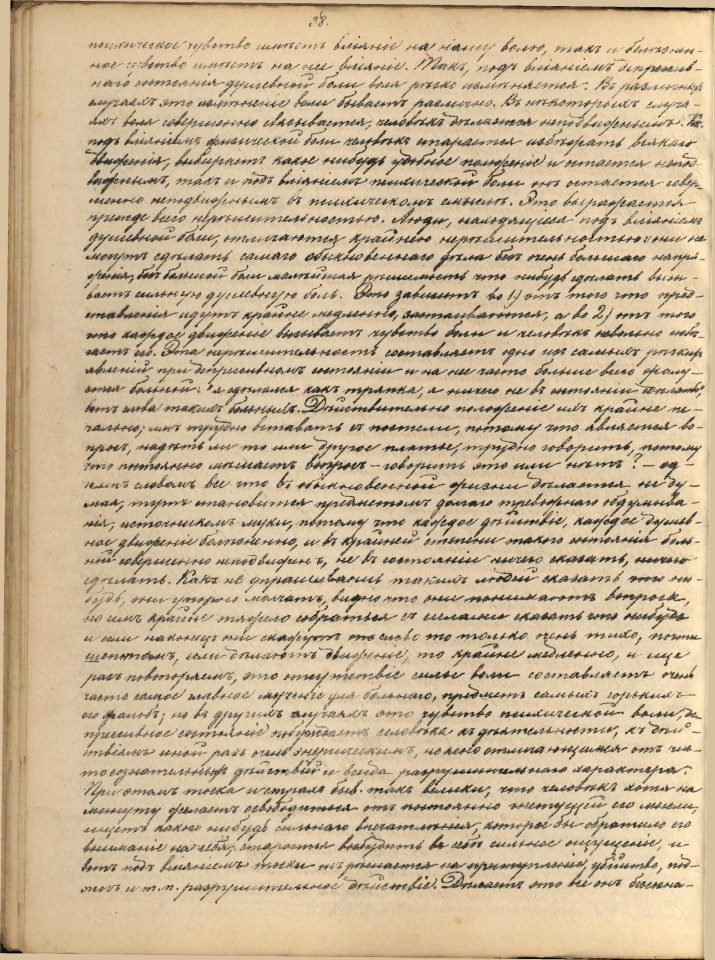 38.
психическое чувство имѣетъ вліяніе на нашу волю, такъ и болѣзнен-
ное чувство имѣетъ на нее вліяніе. Такъ, подъ вліяніемъ депрессив-
наго состоянія душевной боли воля рѣзко измѣняется. Въ различныхъ
случаяхъ это измѣненіе воли бываетъ различно. Въ нѣкоторыхъ случа-
яхъ воля совершенно связывается, человѣкъ дѣлается неподвижнымъ. Какъ
подъ вліяніемъ физической боли человѣкъ старается избѣгать всякаго
движенія, выбираетъ какое нибудь удобное положеніе и остается непод-
вижнымъ, такъ и подъ вліяніемъ психической боли онъ остается совер-
шенно неподвижнымъ въ психическомъ смыслѣ. Это выражается
прежде всего нерѣшительностью. Люди, находящіеся подъ вліяніемъ
душевной боли, отличаются крайнею нерѣшительностью: они не
могутъ сдѣлать самаго обыкновеннаго дѣла безъ очень большаго напря-
женія, безъ большой боли малѣйшая рѣшимость что нибудь сдѣлать вызы-
ваетъ сильную душевную боль. Это зависитъ во 1) отъ того что пред-
ставленія идутъ крайне медленно, застаиваются, а во 2) отъ того
что каждое движеніе вызываетъ чувство боли и человѣкъ невольно избѣ-
гаетъ его. Эта нерѣшительность составляетъ одно изъ самыхъ рѣзкихъ
явленій при депрессивномъ состояніи и на нее часто больше всего жалу-
ются больной: "я сдѣлался какъ тряпка, я ничего не въ состояніи сдѣлать",
вотъ слова такихъ больныхъ. Дѣйствительно положеніе ихъ крайне пе-
чально; имъ трудно вставать съ постели, потому что является во-
просъ, надѣть ли то или другое платье; трудно говорить, потому
что постоянно мѣшаетъ вопросъ – говорить это или нѣтъ? – од-
нимъ словомъ все что въ обыкновенной жизни дѣлается не ду-
мая, тутъ становится предметомъ долгаго тревожнаго обдумыва-
нія, источникомъ муки, потому что каждое дѣйствіе, каждое душев-
ное движеніе болѣзненно, и въ крайней степени такого состоянія боль-
ной совершенно неподвиженъ, не въ состояніи ничего сказать, ничего
сдѣлать. Какъ не упрашиваешь такихъ людей сказать что ни-
будь, они упорно молчатъ, видно что они понимаютъ вопросъ,
но имъ крайне тяжело собраться съ силами сказать что нибудь
и если наконецъ они скажутъ то слово то только очень тихо, почти
шепотомъ, если дѣлаютъ движеніе, то крайне медленно, и еще
разъ повторяемъ, это отсутствіе силы воли составляетъ очень
часто самое главное мученіе для больнаго, предметъ самыхъ горькихъ
его жалобъ; но въ другихъ случаяхъ это чувство психической боли, де-
прессивное состояніе побуждаетъ человѣка къ дѣятельности, къ дѣй-
ствіямъ иной разъ очень энергическимъ, но ясно отличающимся отъ чис-
то сознательныхъ дѣйствій и всегда разрушительнаго характера.
При этомъ тоска и страхъ быв. такъ велики, что человѣкъ хотя на
минуту желаетъ освободиться отъ постоянно гнетущей его мысли,
ищетъ какого нибудь сильнаго впечатлѣнія, которое бы обратило его
вниманіе на себя, старается возбудить въ себѣ сильное ощущеніе, и
вотъ подъ вліяніемъ тоски онъ рѣшается на преступленіе, убійство, под-
жогъ и т. п. разрушительное дѣйствіе. Дѣлаетъ это все онъ безсозна-